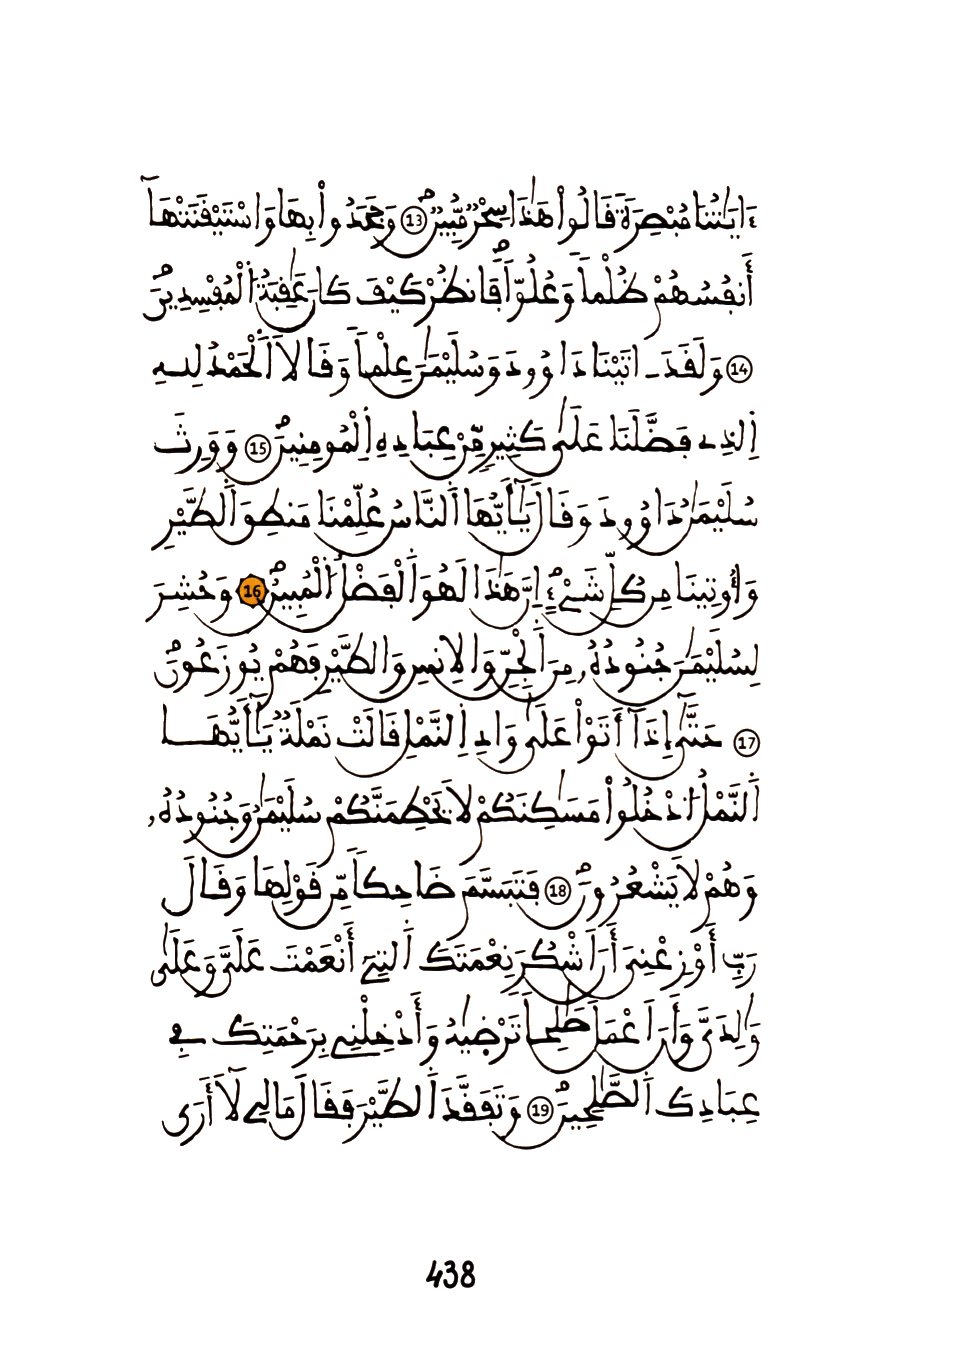 ءَايَٰتُنَا مُبْصِرَةٗ قَالُواْ هَٰذَا سِحْرٞ مُّبِينٞ 13 وَجَحَدُواْ بِهَا وَاسْتَيْقَنَتْهَآ
أَنفُسُهُمْ ظُلْماٗ وَعُلُوّاٗ فَانظُرْ كَيْفَ كَانَ عَٰقِبَةُ اُ۬لْمُفْسِدِينَ
14 وَلَقَدَ اٰتَيْنَا دَاوُۥدَ وَسُلَيْمَٰنَ عِلْماٗ وَقَالَا اَ۬لْحَمْدُ لِلهِ
اِ۬لذِے فَضَّلَنَا عَلَىٰ كَثِيرٖ مِّنْ عِبَادِهِ اِ۬لْمُومِنِينَ 15 وَوَرِثَ
سُلَيْمَٰنُ دَاوُۥدَ وَقَالَ يَٰٓأَيُّهَا اَ۬لنَّاسُ عُلِّمْنَا مَنطِقَ اَ۬لطَّيْرِ
وَأُوتِينَا مِن كُلِّ شَےْءٍۖ اِنَّ هَٰذَا لَهُوَ اَ۬لْفَضْلُ اُ۬لْمُبِينُ 16 وَحُشِرَ
لِسُلَيْمَٰنَ جُنُودُهُۥ مِنَ اَ۬لْجِنِّ وَالِانسِ وَالطَّيْرِ فَهُمْ يُوزَعُونَ
17 حَتَّىٰٓ إِذَآ أَتَوْاْ عَلَىٰ وَادِ اِ۬لنَّمْلِ قَالَتْ نَمْلَةٞ يَٰٓأَيُّهَا
اَ۬لنَّمْلُ اُ۟دْخُلُواْ مَسَٰكِنَكُمْ لَا يَحْطِمَنَّكُمْ سُلَيْمَٰنُ وَجُنُودُهُۥ
وَهُمْ لَا يَشْعُرُونَ 18 فَتَبَسَّمَ ضَاحِكاٗ مِّن قَوْلِهَا وَقَالَ
رَبِّ أَوْزِعْنِے أَنَ اَشْكُرَ نِعْمَتَكَ اَ۬لتِےٓ أَنْعَمْتَ عَلَيَّ وَعَلَىٰ
وَٰلِدَيَّ وَأَنَ اَعْمَلَ صَٰلِحاٗ تَرْضَىٰهُ وَأَدْخِلْنِے بِرَحْمَتِكَ فِے
عِبَادِكَ اَ۬لصَّٰلِحِينَ 19 وَتَفَقَّدَ اَ۬لطَّيْرَ فَقَالَ مَا لِے لَآ أَرَى
438